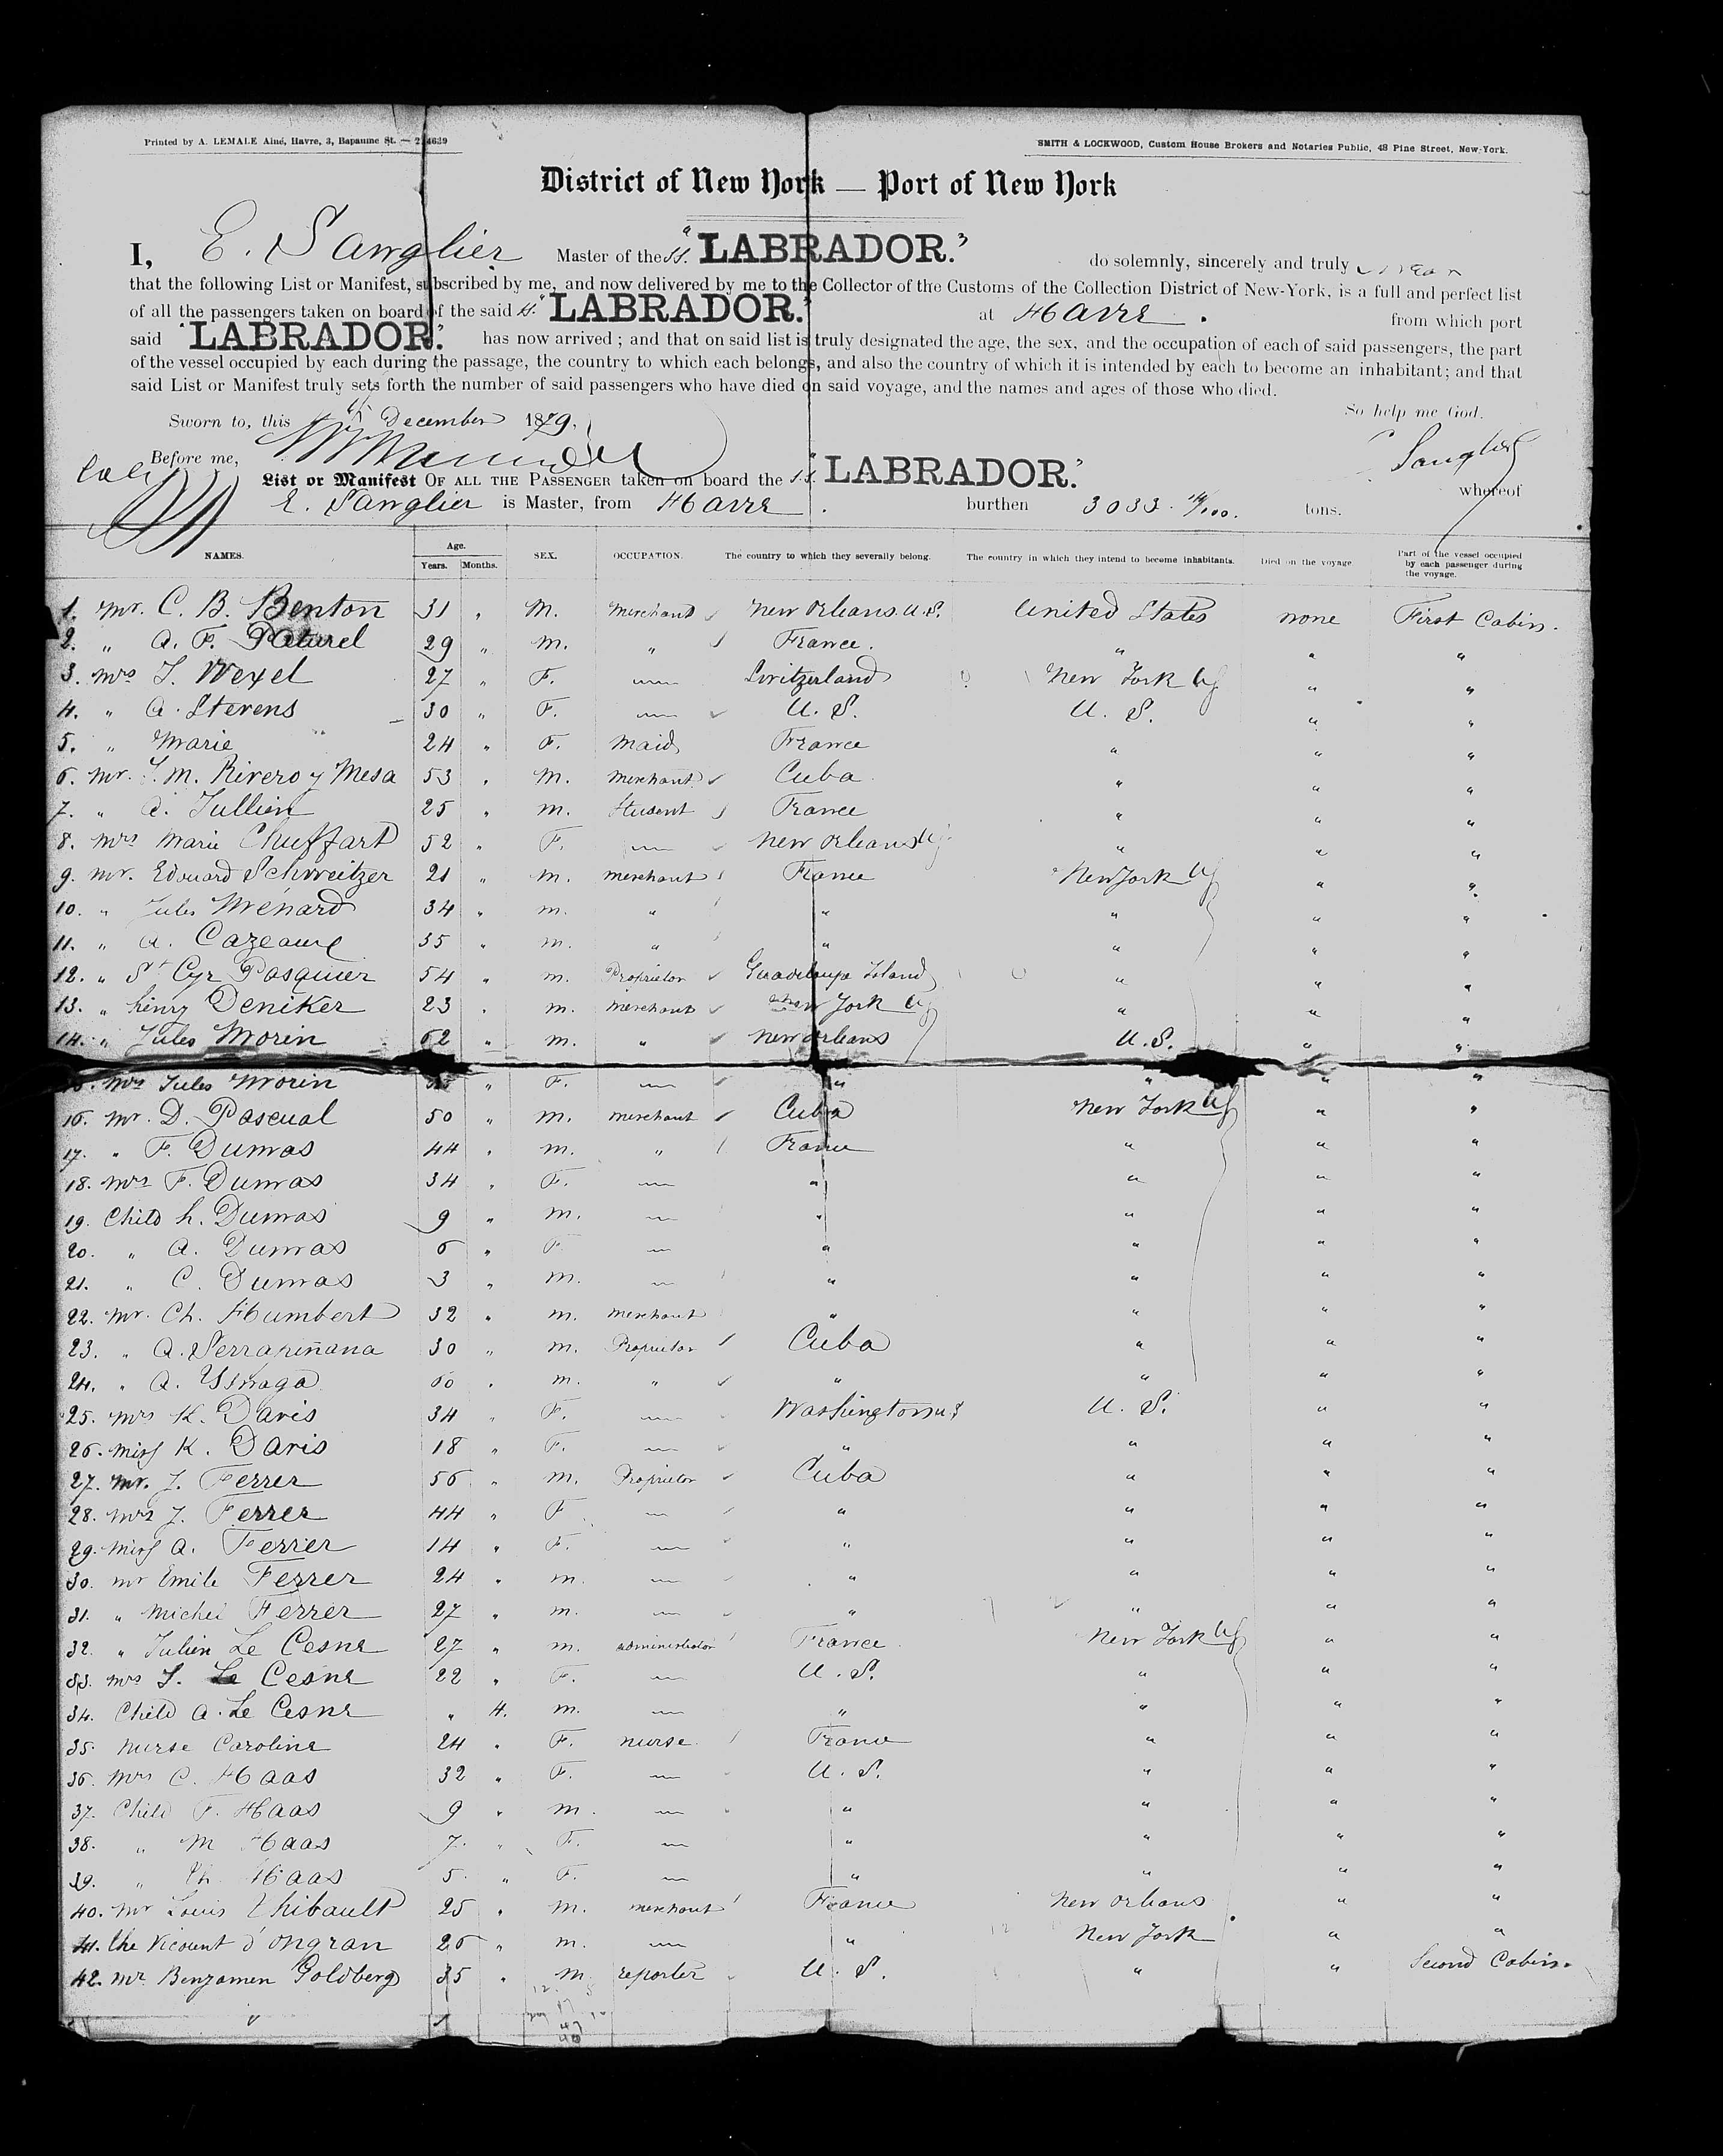 Printed by A. LEMALE Ainé, Havre, 3, Bapaume St. — 2 4639
SMITH & LOCKWOOD, Custom House Brokers and Notaries Public, 48 Pine Street, New-York.
District of New York — Port of New York
I, E. Sanglier Master of the SS. "LABRADOR." do solemnly, sincerely and truly
that the following List or Manifest, subscribed by me, and now delivered by me to the Collector of the Customs of the Collection District of New-York, is a full and perfect list
of all the passengers taken on board of the said SS. "LABRADOR." at Havre. from which port
said "LABRADOR." has now arrived; and that on said list is truly designated the age, the sex, and the occupation of each of said passengers, the part
of the vessel occupied by each during the passage, the country to which each belongs, and also the country of which it is intended by each to become an inhabitant; and that
said List or Manifest truly sets forth the number of said passengers who have died on said voyage, and the names and ages of those who died.
Sworn to, this December 1879. So help me God.
Before me, Sanglier
List or Manifest OF ALL THE PASSENGER taken on board the S.S. "LABRADOR." whereof
E. Sanglier is Master, from Havre. burthen 3033. 14/100. tons.
NAMES. Age. Years. Months. SEX. OCCUPATION. The country to which they severally belong. The country in which they intend to become inhabitants. Died on the voyage. Part of the vessel occupied by each passenger during the voyage.
1. Mr. C. B. Benton 31 " M. Merchant New Orleans U.S. United States none First Cabin.
2. " A. F. Paturel 29 " M. " France. " " "
3. Mrs J. Wexel 27 " F. — Switzerland New York " "
4. " A. Stevens 30 " F. — U. S. U. S. " "
5. " Marie 24 " F. Maid France " " "
6. Mr. J. M. Rivero y Mesa 53 " M. Merchant Cuba " " "
7. " A. Jullien 25 " M. Student France " " "
8. Mrs Marie Chuffart 52 " F. — New Orleans " " "
9. Mr. Edouard Schweitzer 21 " M. Merchant France New York " "
10. " Jules Menard 34 " M. " " " " "
11. " A. Cazeaux 35 " M. " " " " "
12. " St Cyr Pasquier 54 " M. Proprietor Guadeloupe Island " " "
13. " Henry Deniker 23 " M. Merchant New York " " "
14. " Jules Morin 62 " M. " New Orleans U.S. " "
15. Mrs Jules Morin " F. — " " " "
16. Mr. D. Pascual 50 " M. Merchant Cuba New York " "
17. " F. Dumas 44 " M. " France " " "
18. Mrs F. Dumas 34 " F. — " " " "
19. Child h. Dumas 9 " M. — " " " "
20. " A. Dumas 6 " F — " " " "
21. " C. Dumas 3 " M. — " " " "
22. Mr. Ch. Humbert 32 " M. Merchant " " " "
23. " A. Serrapiñana 30 " M. Proprietor Cuba " " "
24. " A. Ysnaga 60 " M. " " " " "
25. Mrs K. Davis 34 " F. — Washington U.S U. S. " "
26. Miss K. Davis 18 " F. — " " " "
27. Mr. J. Ferrer 56 " M. Proprietor Cuba " " "
28. Mrs J. Ferrer 44 " F — " " " "
29. Miss A. Ferrer 14 " F. — " " " "
30. Mr Emile Ferrer 24 " M. — " " " "
31. " Michel Ferrer 27 " M. — " " " "
32. " Julien Le Cesne 27 " M. administrator France New York " "
33. Mrs J. Le Cesne 22 " F. — U. S. " " "
34. Child A. Le Cesne " 4. M. — " " " "
35. Nurse Caroline 24 " F. Nurse France " " "
36. Mrs C. Haas 32 " F. — U. S. " " "
37. Child F. Haas 9 " M. — " " " "
38. " M Haas 7. " F. — " " " "
39. " Ch. Haas 5 " F. — " " " "
40. Mr Louis Thibault 25 " M. Merchant France New Orleans " "
41. the Vicount d'ongran 26 " M. — " New York " "
42. Mr Benjamen Goldberg 35 " M. reporter U. S. " " Second Cabin.